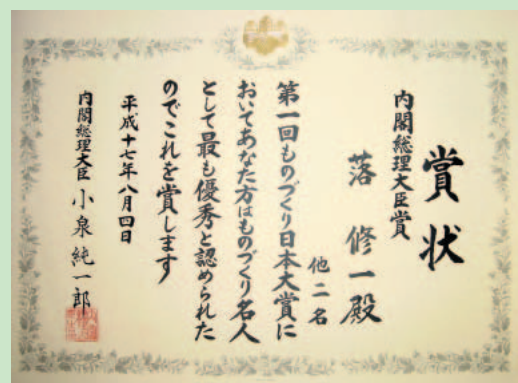 賞状
内閣総理大臣賞
落修一殿
他二名
第一回ものづくり日本大賞に
おいてあなた方はものづくり名人
として最も優秀と認められた
のでこれを賞します
平成十七年八月四日
内閣総理大臣 小泉純一郎